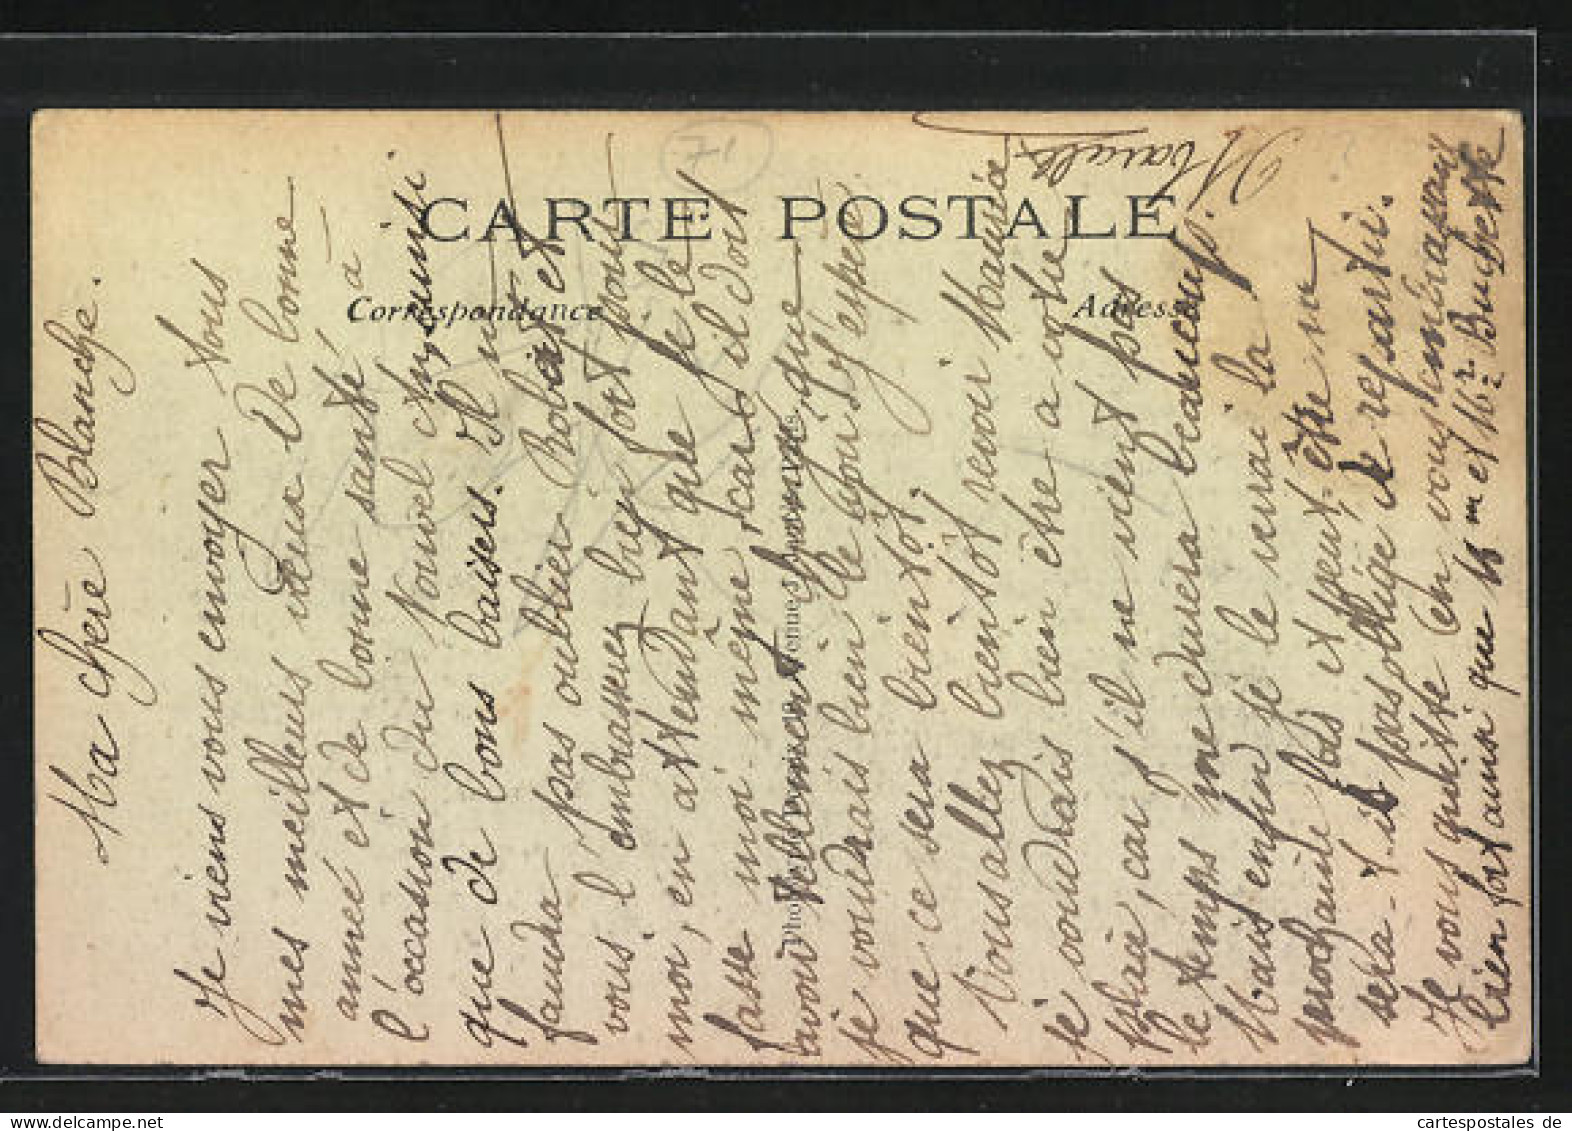 71
CARTE POSTALE
Correspondance
Adresse
Ma chère Blanche.
Je viens vous envoyer tous
mes meilleurs vœux de bonne
année et de bonne santé, à
l'occasion du nouvel an, ainsi
que de bons baisers. Il ne
faudra pas oublier Robert et
vous l'embrasserez bien fort pour
moi, en attendant que je le
fasse moi-même, car il doit
avoir tellement, que
je voudrais bien le voir. J'espère
que ce sera bientôt.
Vous allez bientôt revoir Maurice
je voudrais bien être à votre
place, car s'il ne vient pas
le temps me durera beaucoup.
Mais enfin je le verrai la
prochaine fois et peut-être ne
sera-t-il pas obligé de repartir.
Je vous quitte en vous embrassant
bien fort ainsi que M et Buchette
cartespostales de